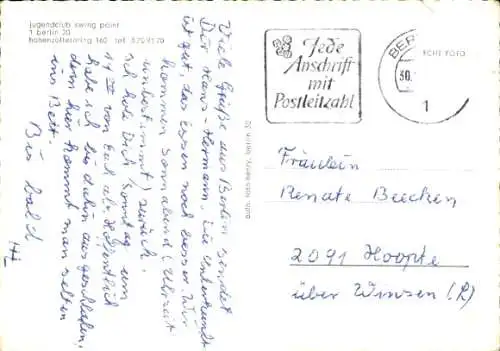 jugendclub swing point
1 berlin 30
hohenzollerndamg 160 tel: 8709170
Viele Grüße aus Berlin sendet
Dir Hans-Hermann. Die Unterkunft
ist gut, das Essen noch besser. Wir
kommen Sonnabend (Uhrzeit
unbestimmt) zurück.
Ich hole Dich Sonntag um
14 30 von Euch ab. Hoffentlich
habe ich bis dahin ausgeschlafen,
denn hier kommt man selten
ins Bett.
Bis bald
HH
Jede
Anschrift
mit
Postleitzahl
BER
30.
1
ECHT FOTO
Fräulein
Renate Beecken
2091 Hoopte
über Winsen (L)
berlin 30